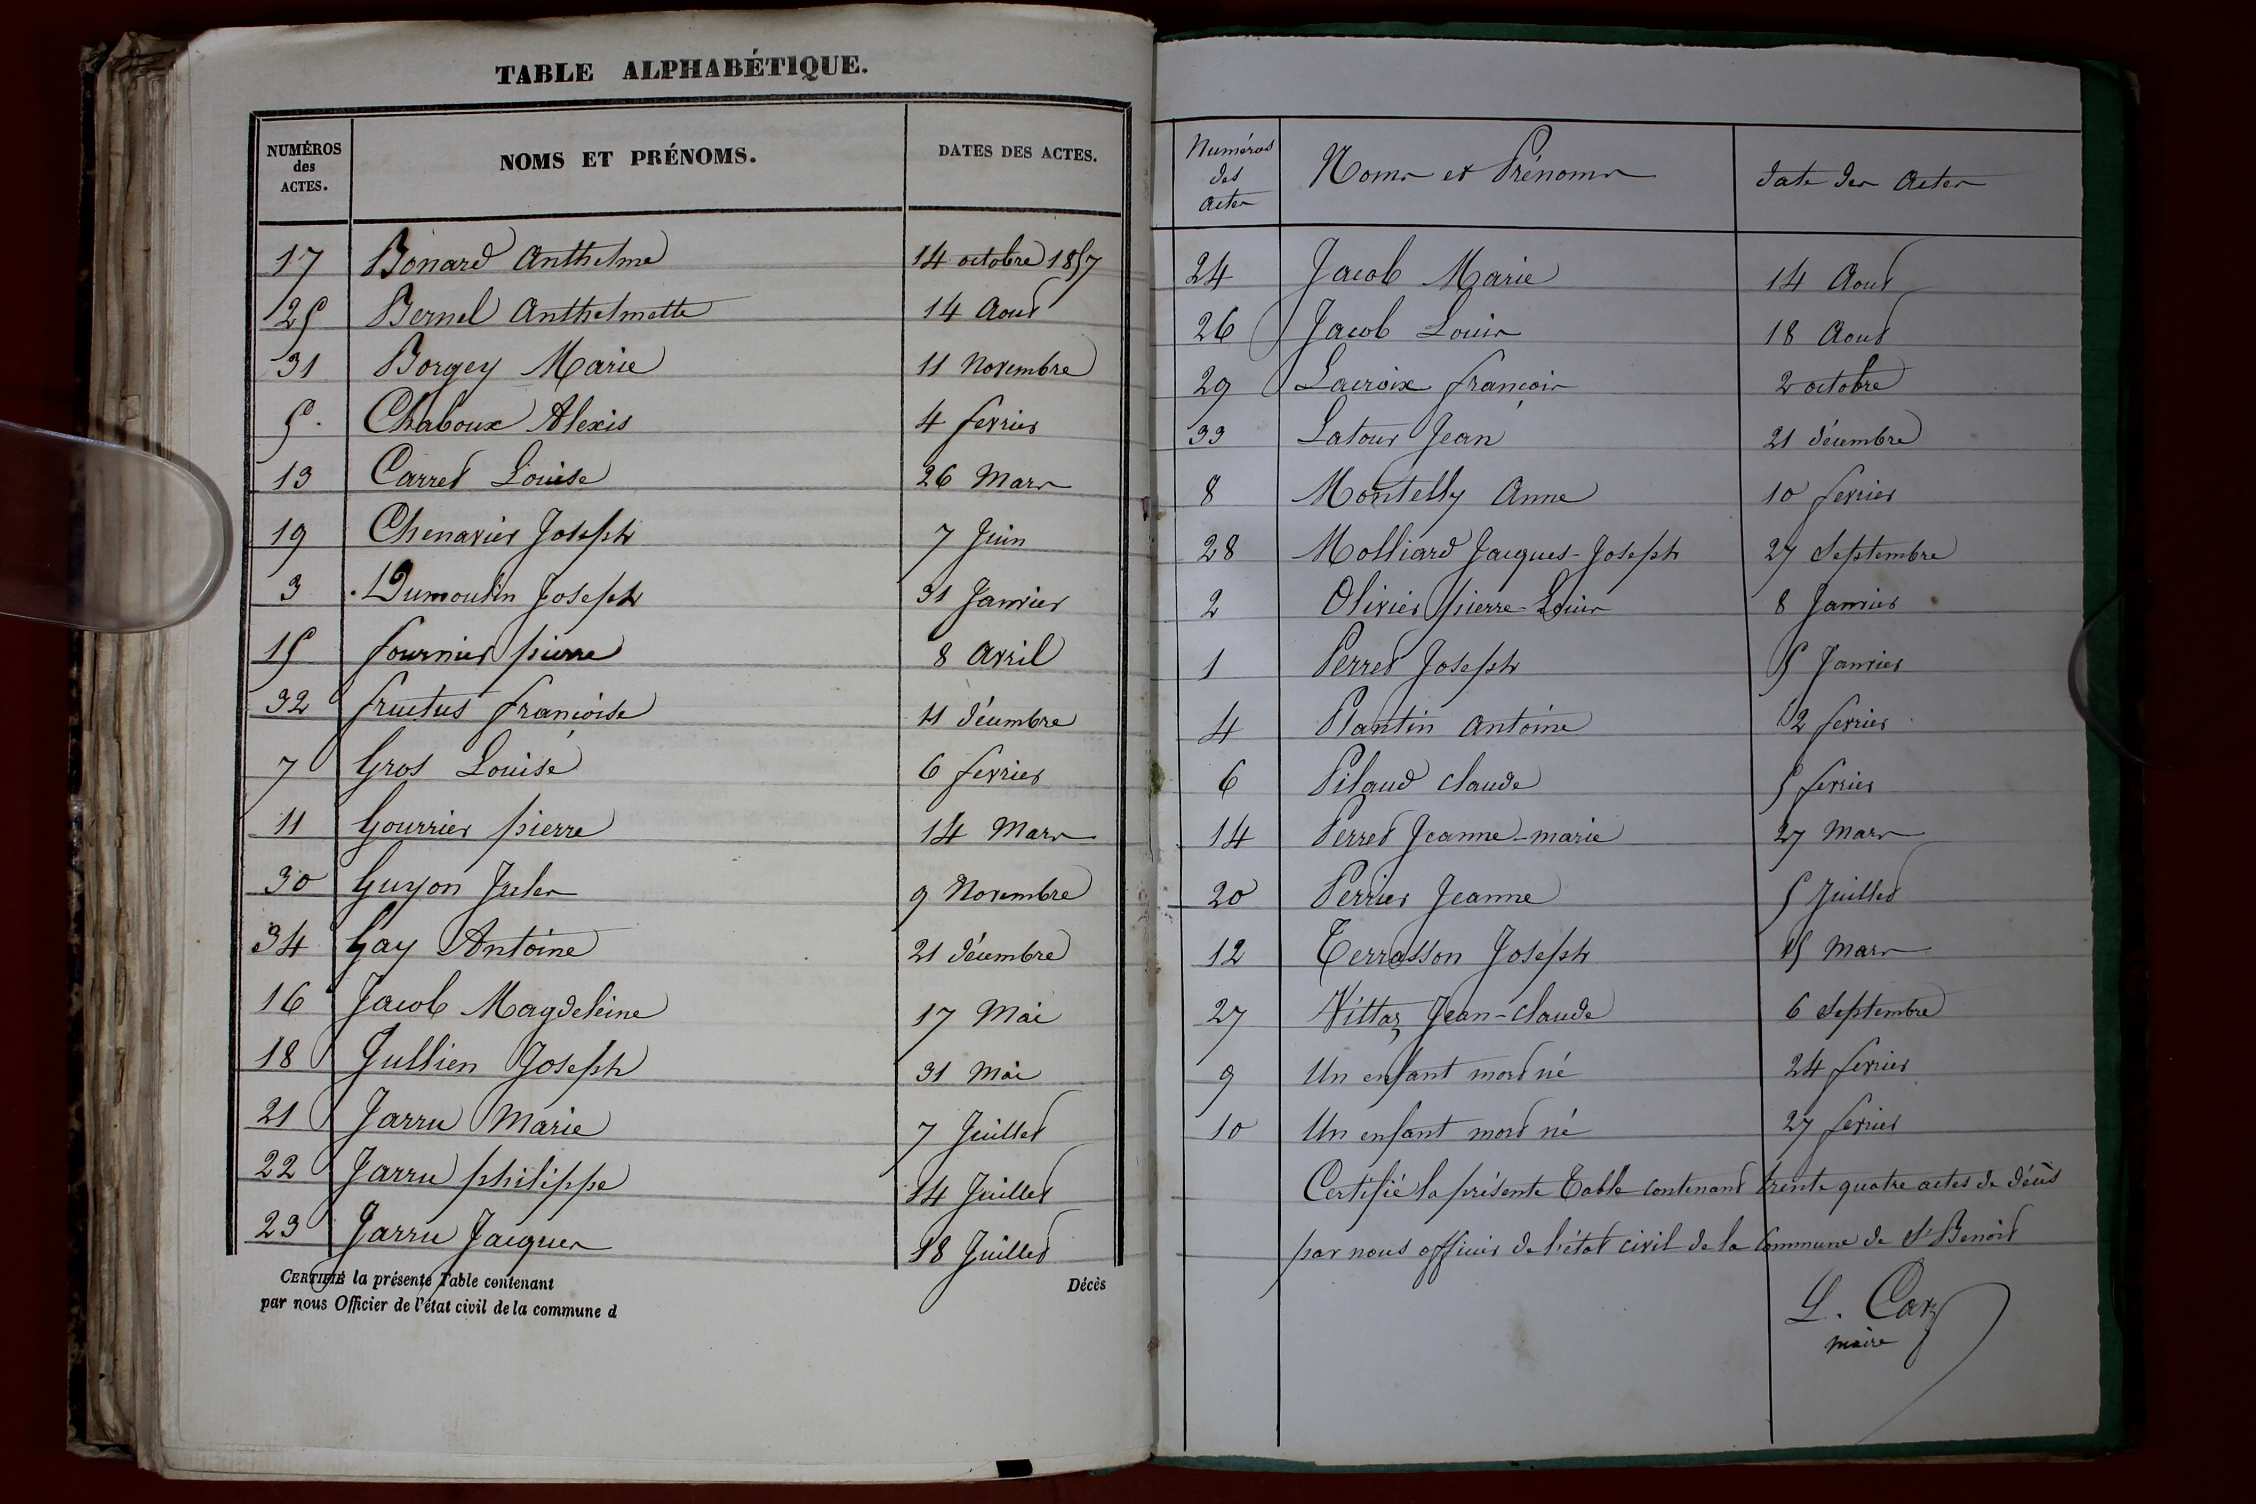 TABLE ALPHABÉTIQUE.
NUMÉROS des ACTES. NOMS ET PRÉNOMS. DATES DES ACTES.
17 Bonard Anthelme 14 octobre 1857
25 Bernel Anthelmette 14 Aout
31 Borgey Marie 11 Novembre
5. Chaboux Alexis 4 fevrier
13 Carret Louise 26 Mars
19 Chenavier Joseph 7 Juin
3 Dumoulin Joseph 31 Janvier
15 fournier pierre 8 Avril
32 fructus françoise 11 décembre
7 Gros Louise 6 fevrier
11 Gourrier pierre 14 Mars
30 Guyon Jules 9 Novembre
34 Gay Antoine 21 décembre
16 Jacob Magdeleine 17 Mai
18 Jullien Joseph 31 Mai
21 Jarru Marie 7 Juillet
22 Jarru philippe 14 Juillet
23 Jarru Jacques 18 Juillet
CERTIFIÉ la présente Table contenant Décès
par nous Officier de l'état civil de la commune d
Numéros des actes Noms et Prénoms date des actes
24 Jacob Marie 14 Aout
26 Jacob Louis 18 Aout
29 Lacroix françois 2 octobre
33 Latour Jean 21 décembre
8 Montelly Anne 10 fevrier
28 Molliard Jacques-Joseph 27 Septembre
2 Olivier pierre-Louis 8 Janvier
1 Perret Joseph 5 Janvier
4 Plantin Antoine 2 fevrier
6 Pilaud claude 5 fevrier
14 Perret Jeanne-marie 27 Mars
20 Perrier Jeanne 5 Juillet
12 Terrasson Joseph 15 Mars
27 Vittaz Jean-claude 6 Septembre
9 Un enfant mort né 24 fevrier
10 Un enfant mort né 27 fevrier
Certifié la présente Table contenant trente quatre actes de décès
par nous officier de l'état civil de la Commune de St Benoit
L. Caz
maire